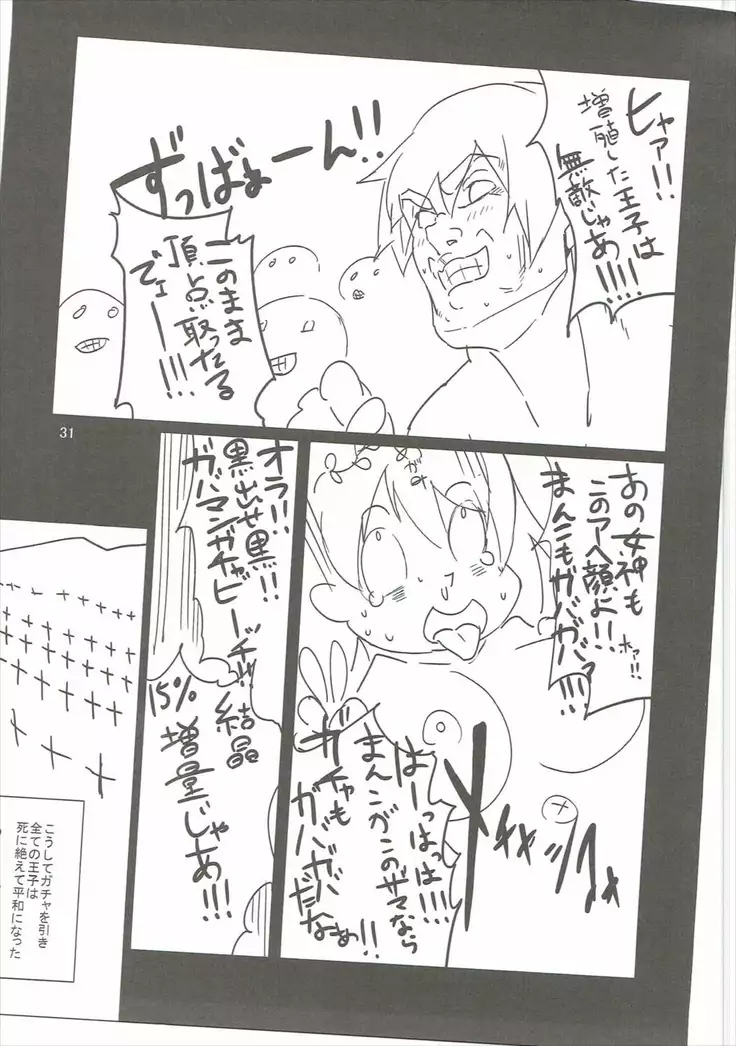 ヒャア!!
増殖した王子は
無敵じゃあ!!!!
ずっばぉーん!!
このまま
頂点取ったる
でェー!!!
31
あの女神も
このアヘ顔よ!!
まんこもガバガバァ!!!
ホァ!!
めがみ
はーっはっは!!!
まんこがこのザマなら
ガチャも
ガバガバだなぁ!!
オラ!!
黒出せ黒!!
ガバマンガチャビーッチ!!
結晶
15%
増量じゃあ!!!
こうしてガチャを引き
全ての王子は
死に絶えて平和になった